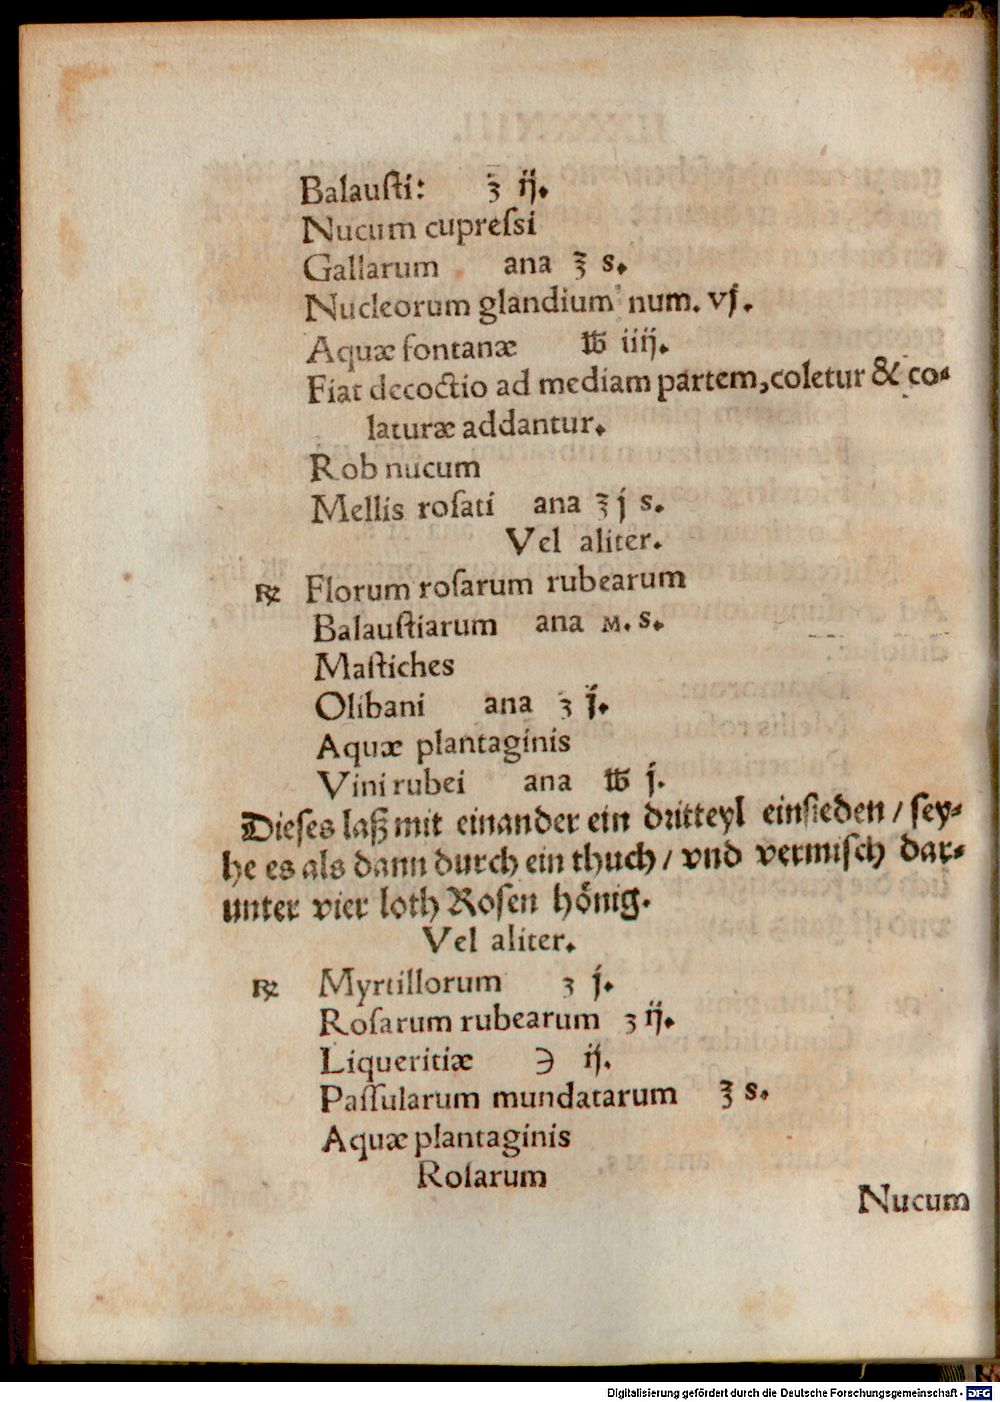 Balausti: ʒ ij.
Nucum cupreſsi
Gallarum ana ℥ s.
Nucleorum glandium num. vj.
Aquæ fontanæ ℔ iiij.
Fiat decoctio ad mediam partem, coletur & co⸗
laturæ addantur.
Rob nucum
Mellis roſati ana ℥ j s.
Vel aliter.
℞ Florum roſarum rubearum
Balauſtiarum ana M. s.
Maſtiches
Olibani ana ʒ j.
Aquæ plantaginis
Vini rubei ana ℔ j.
Dieſes laß mit einander ein dritteyl einſieden / ſey⸗
he es als dann durch ein thuch / vnd vermiſch dar⸗
unter vier loth Roſen hönig.
Vel aliter.
℞ Myrtillorum ʒ j.
Roſarum rubearum ʒ ij.
Liqueritiæ ℈ ij.
Paſſularum mundatarum ℥ s.
Aquæ plantaginis
Roſarum
Nucum
Digitalisierung gefördert durch die Deutsche Forschungsgemeinschaft - DFG